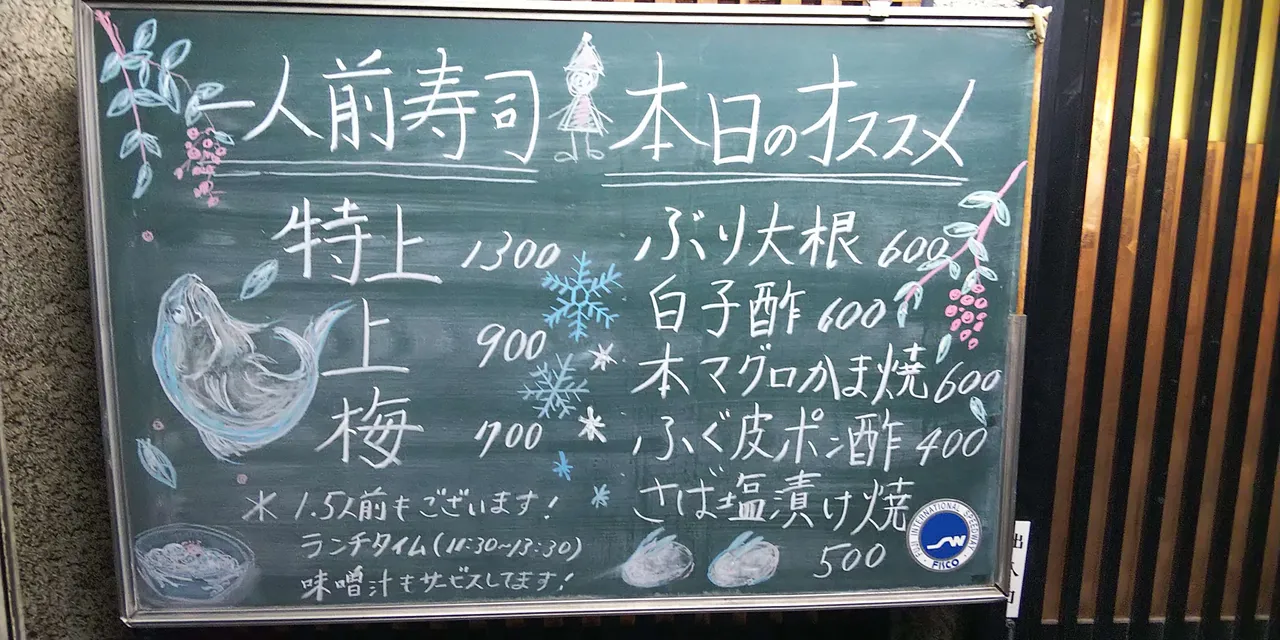 一人前寿司
特上 1300
上 900
梅 700
* 1.5人前もございます!
ランチタイム(11:30~13:30)
味噌汁もサービスしてます!
本日のオススメ
ぶり大根 600
白子酢 600
本マグロかま焼 600
ふぐ皮ポン酢 400
さば塩漬け焼
500
FUJI INTERNATIONAL SPEEDWAY
FISCO